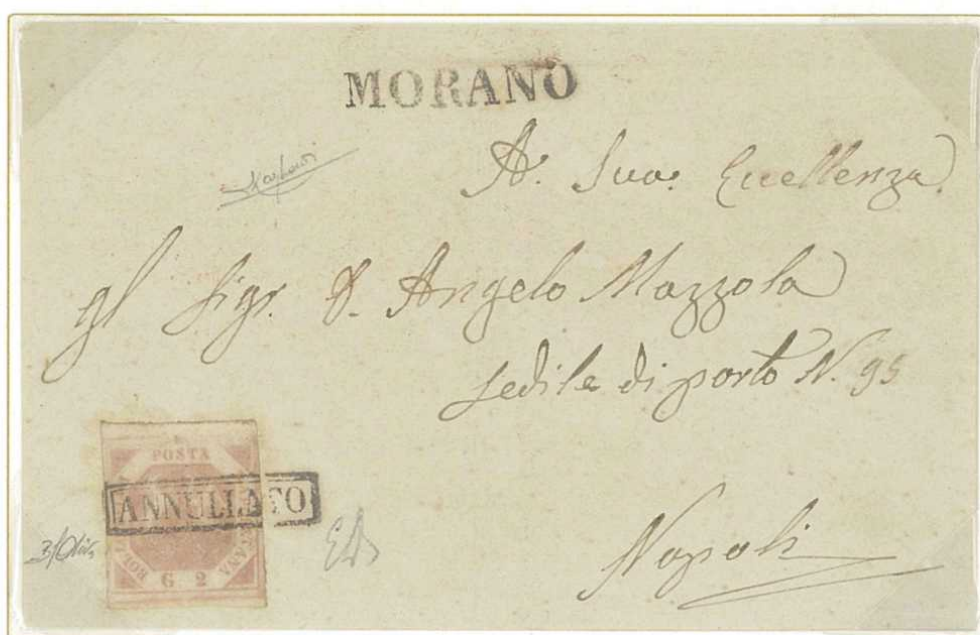 MORANO
A. Sua. Eccellenza
gl Sigr. D. Angelo Mazzola
sedile di porto N. 95
POSTA
ANNULLATO
G 2
Napoli